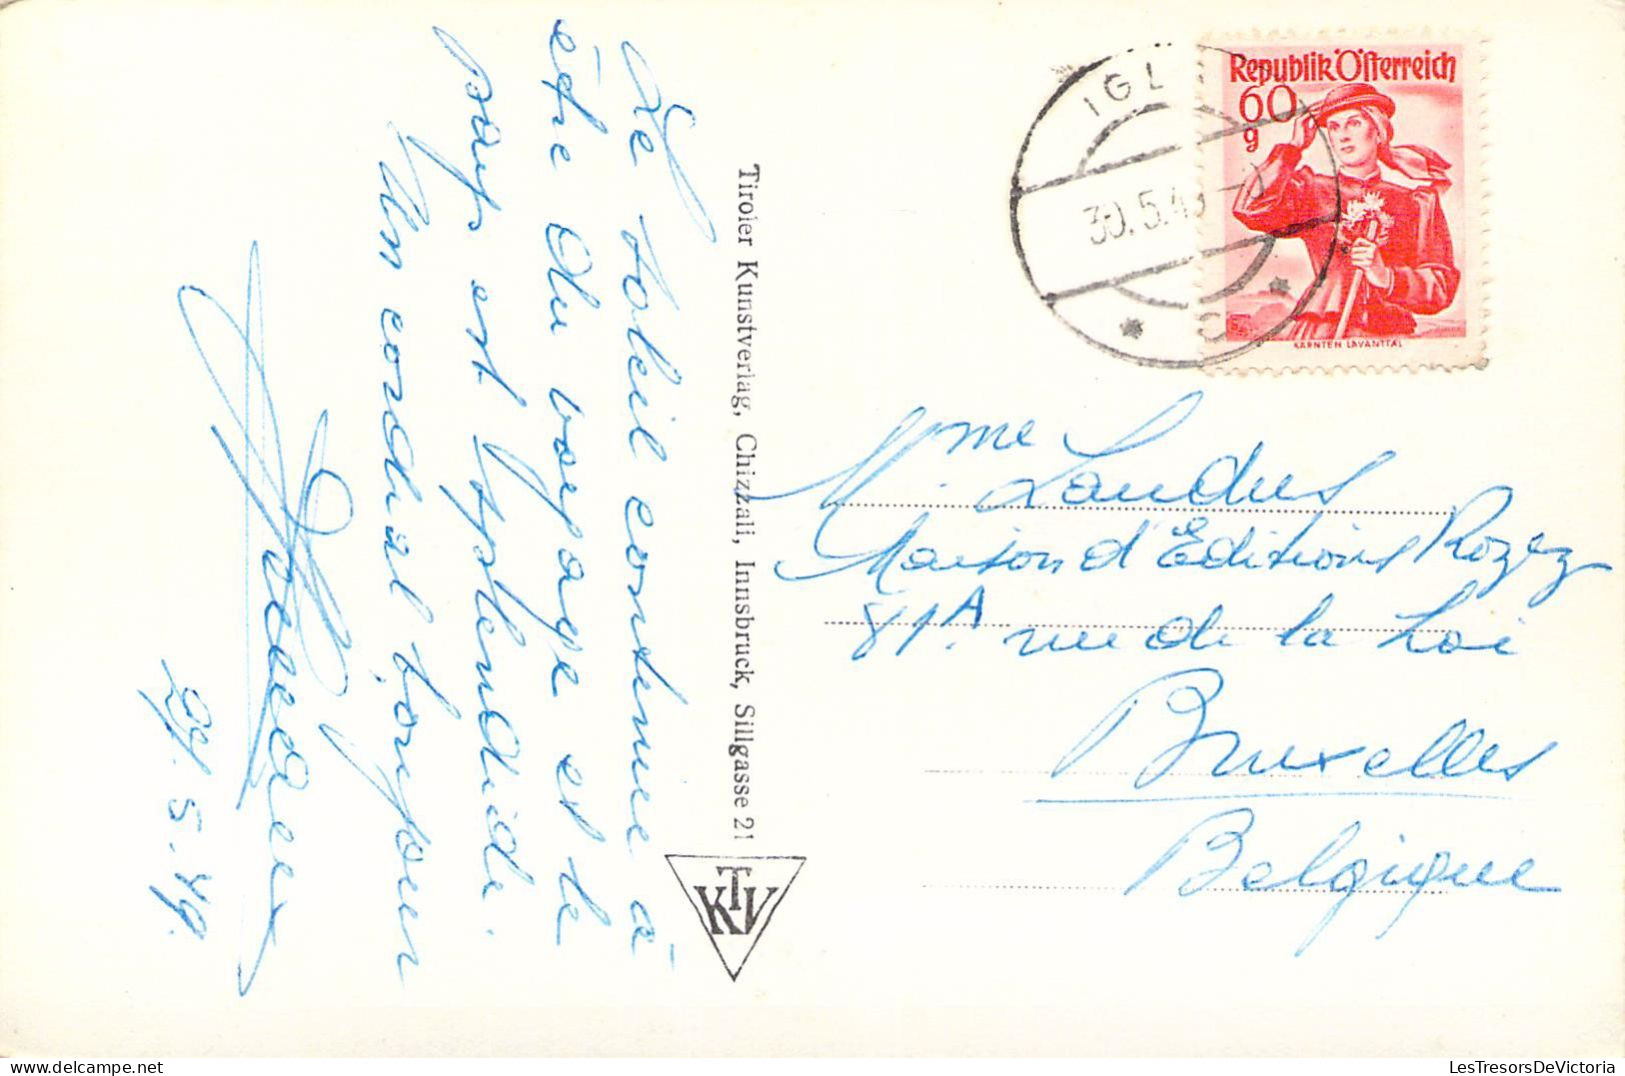 Le soleil continue à
être du voyage et le
pays est splendide.
Un cordial bonjour
29.5.49.
Tiroler Kunstverlag, Chizzali, Innsbruck, Sillgasse 21
KTV
IGL
30.5.49
Republik Österreich
60
g
KÄRNTEN LAVANTTAL
Mme Landus
Maison d'Editions Rozez
81A. rue de la Loi
Bruxelles
Belgique
LesTresorsDeVictoria